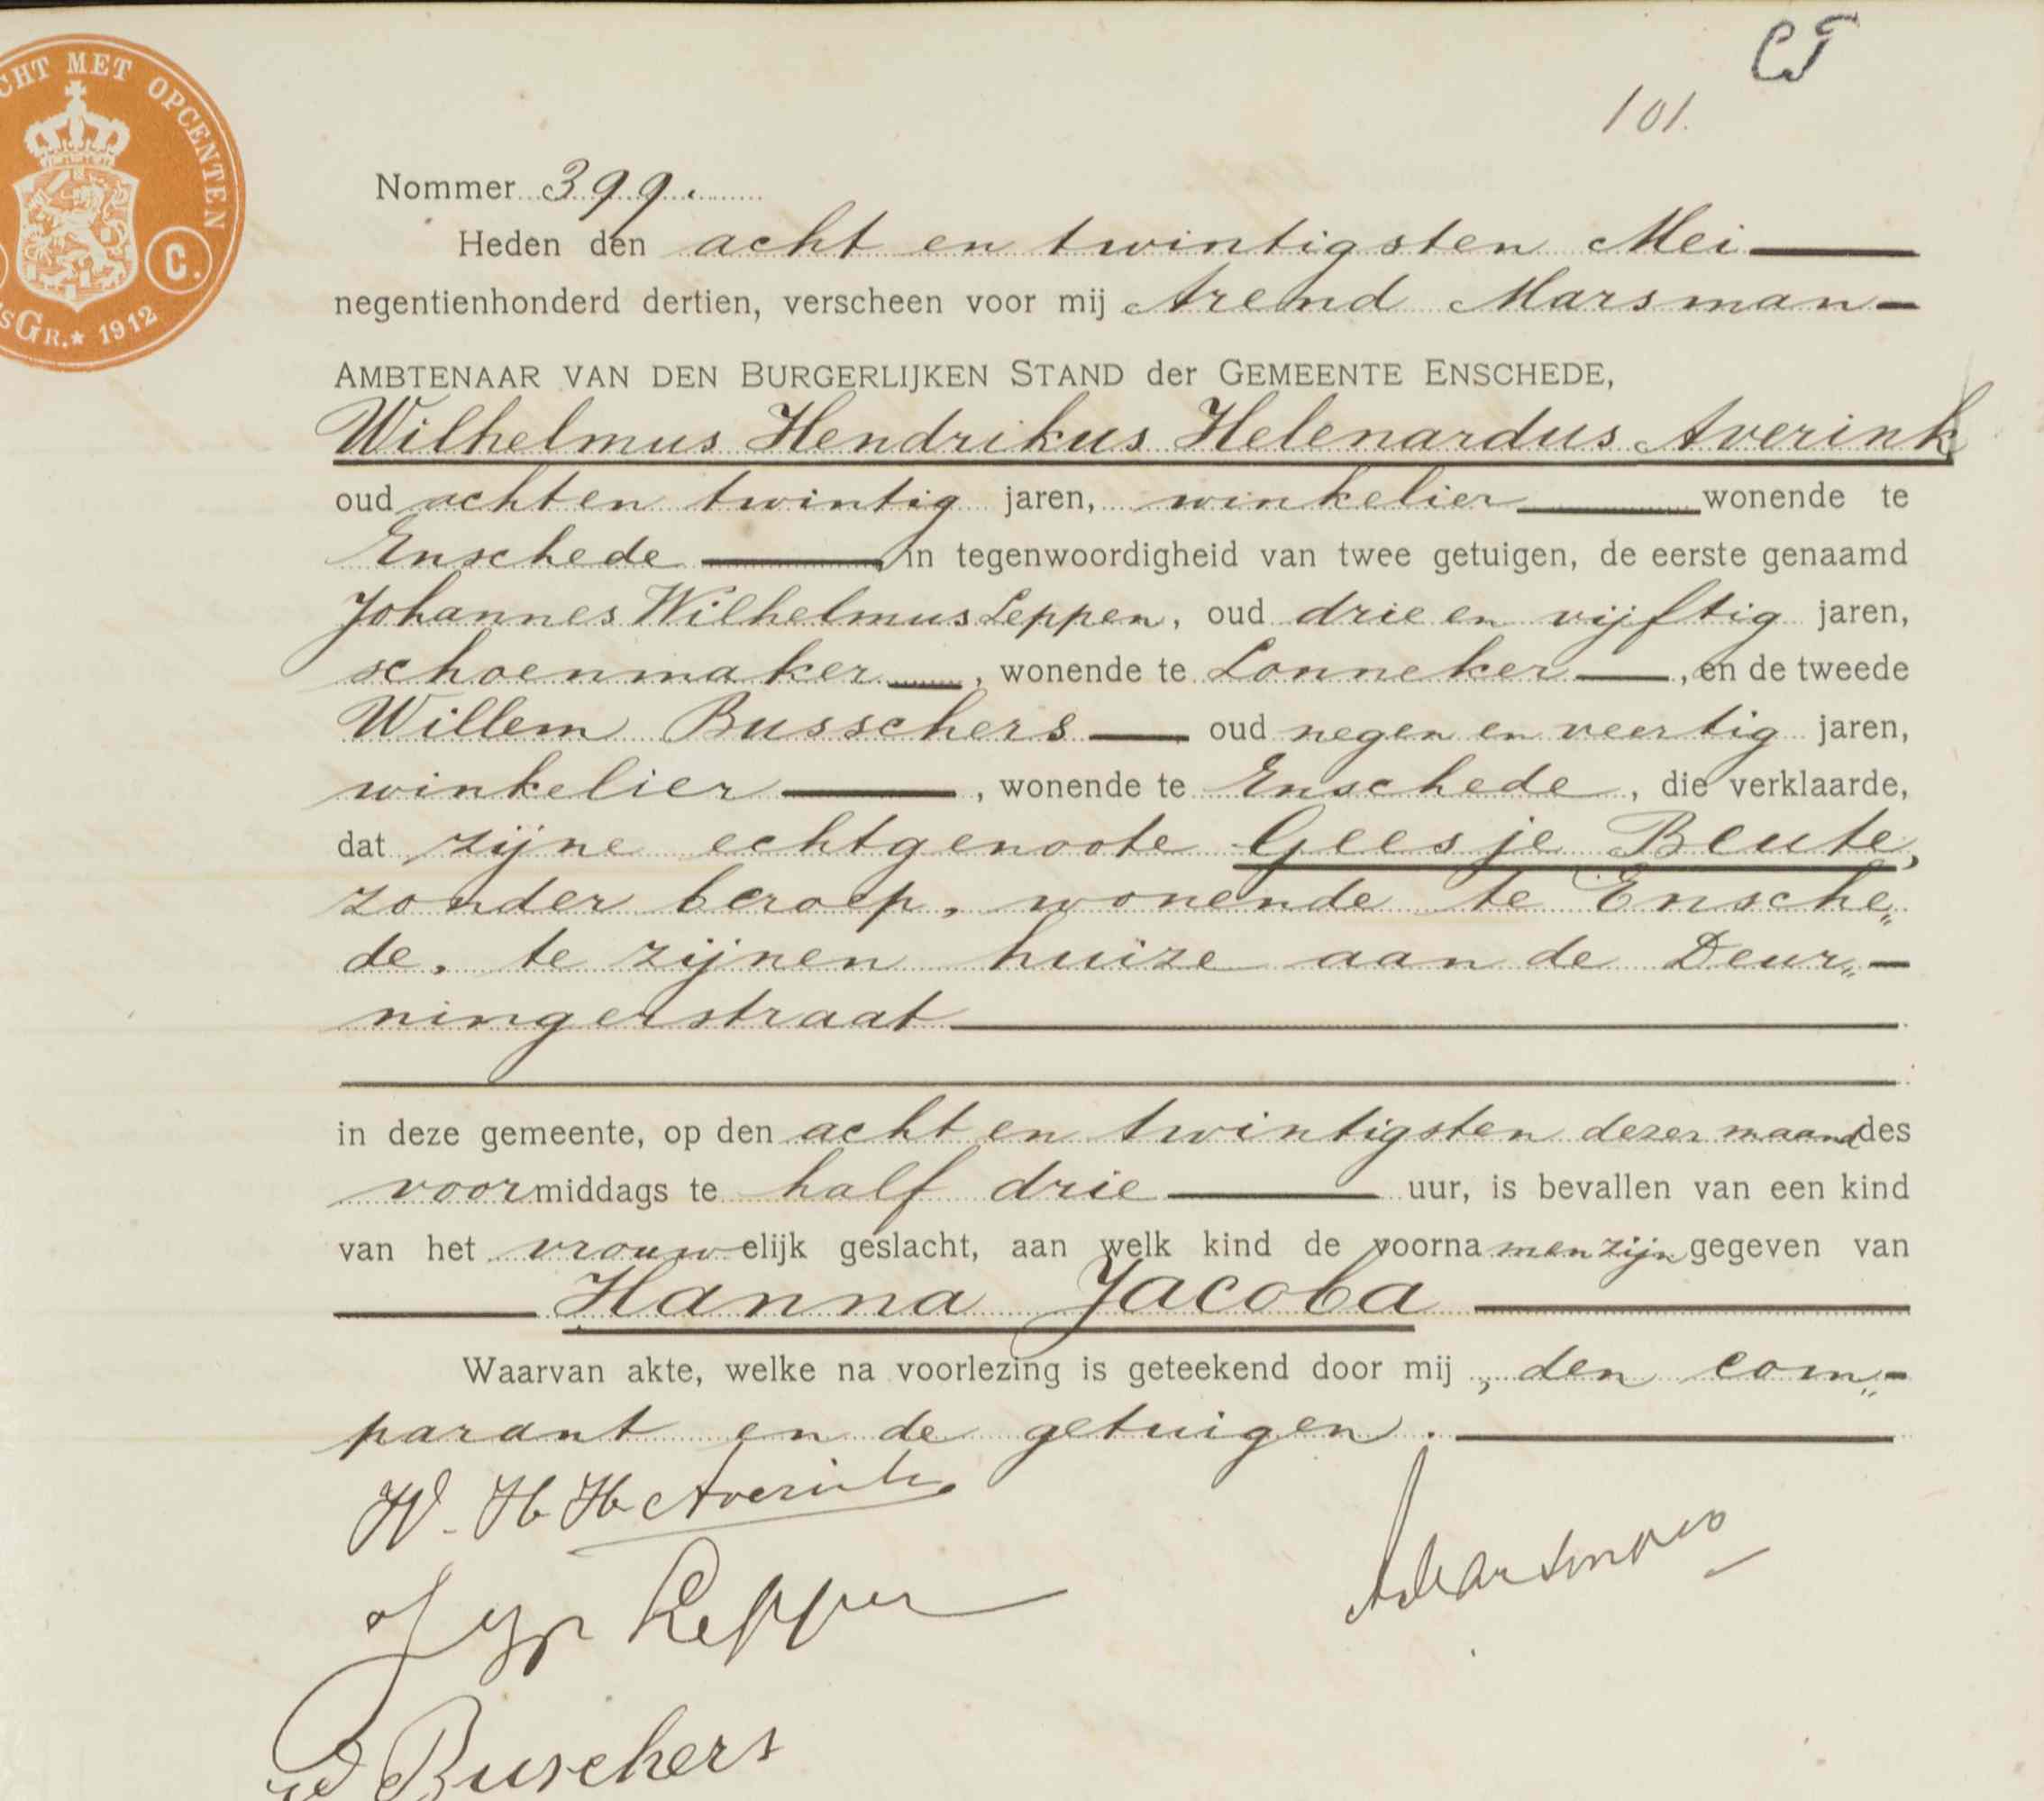 CHT MET OPCENTEN
C.
SGR.★ 1912
CJ
101.
Nommer 399.
Heden den acht en twintigsten Mei
negentienhonderd dertien, verscheen voor mij Arend Marsman
AMBTENAAR VAN DEN BURGERLIJKEN STAND der GEMEENTE ENSCHEDE,
Wilhelmus Hendrikus Helenardus Averink,
oud acht en twintig jaren, winkelier wonende te
Enschede in tegenwoordigheid van twee getuigen, de eerste genaamd
Johannes Wilhelmus Leppen, oud drie en vijftig jaren,
schoenmaker, wonende te Lonneker, en de tweede
Willem Busschers oud negen en veertig jaren,
winkelier, wonende te Enschede, die verklaarde,
dat zijne echtgenoote Geesje Beute,
zonder beroep, wonende te Ensche„
de, te zijnen huize aan de Deur„
ningerstraat
in deze gemeente, op den acht en twintigsten dezer maand des
voormiddags te half drie uur, is bevallen van een kind
van het vrouwelijk geslacht, aan welk kind de voornamen zijn gegeven van
Hanna Jacoba
Waarvan akte, welke na voorlezing is geteekend door mij, den com„
parant en de getuigen.
W. H H Averink
J W Leppen
AMarsman
W Buschers